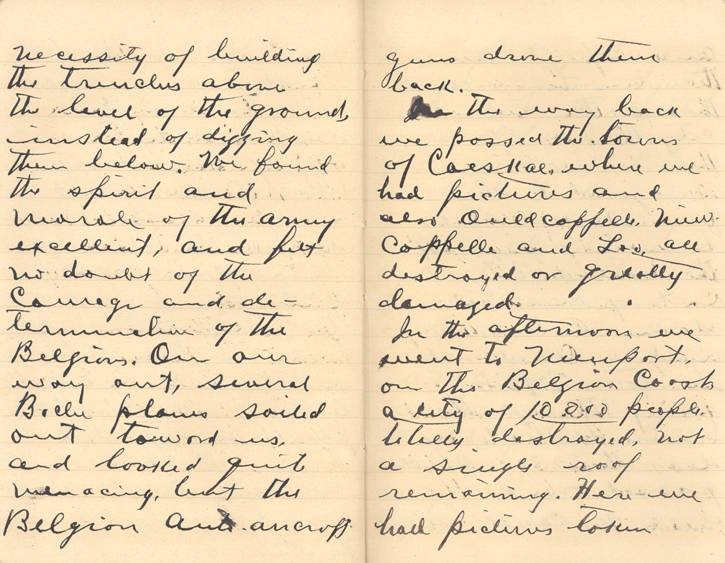 necessity of building
the trenches above
the level of the ground,
instead of digging
them below. We found
the spirit and
morale of the army
excellent, and felt
no doubt of the
Courage and de-
termination of the
Belgians. On our
way out, several
Boche planes sailed
out toward us,
and looked quite
menacing, but the
Belgian Anti-aircraft
guns drove them
back.
the way back
we passed the towns
of Caeskae, where we
had pictures and
also Ouldcappelle, Niew-
Cappelle and Loo, all
destroyed or greatly
damaged.
In the afternoon we
went to Nieuport,
on the Belgian Coast
a city of people,
totally destroyed, not
a single roof
remaining. Here we
had pictures taken